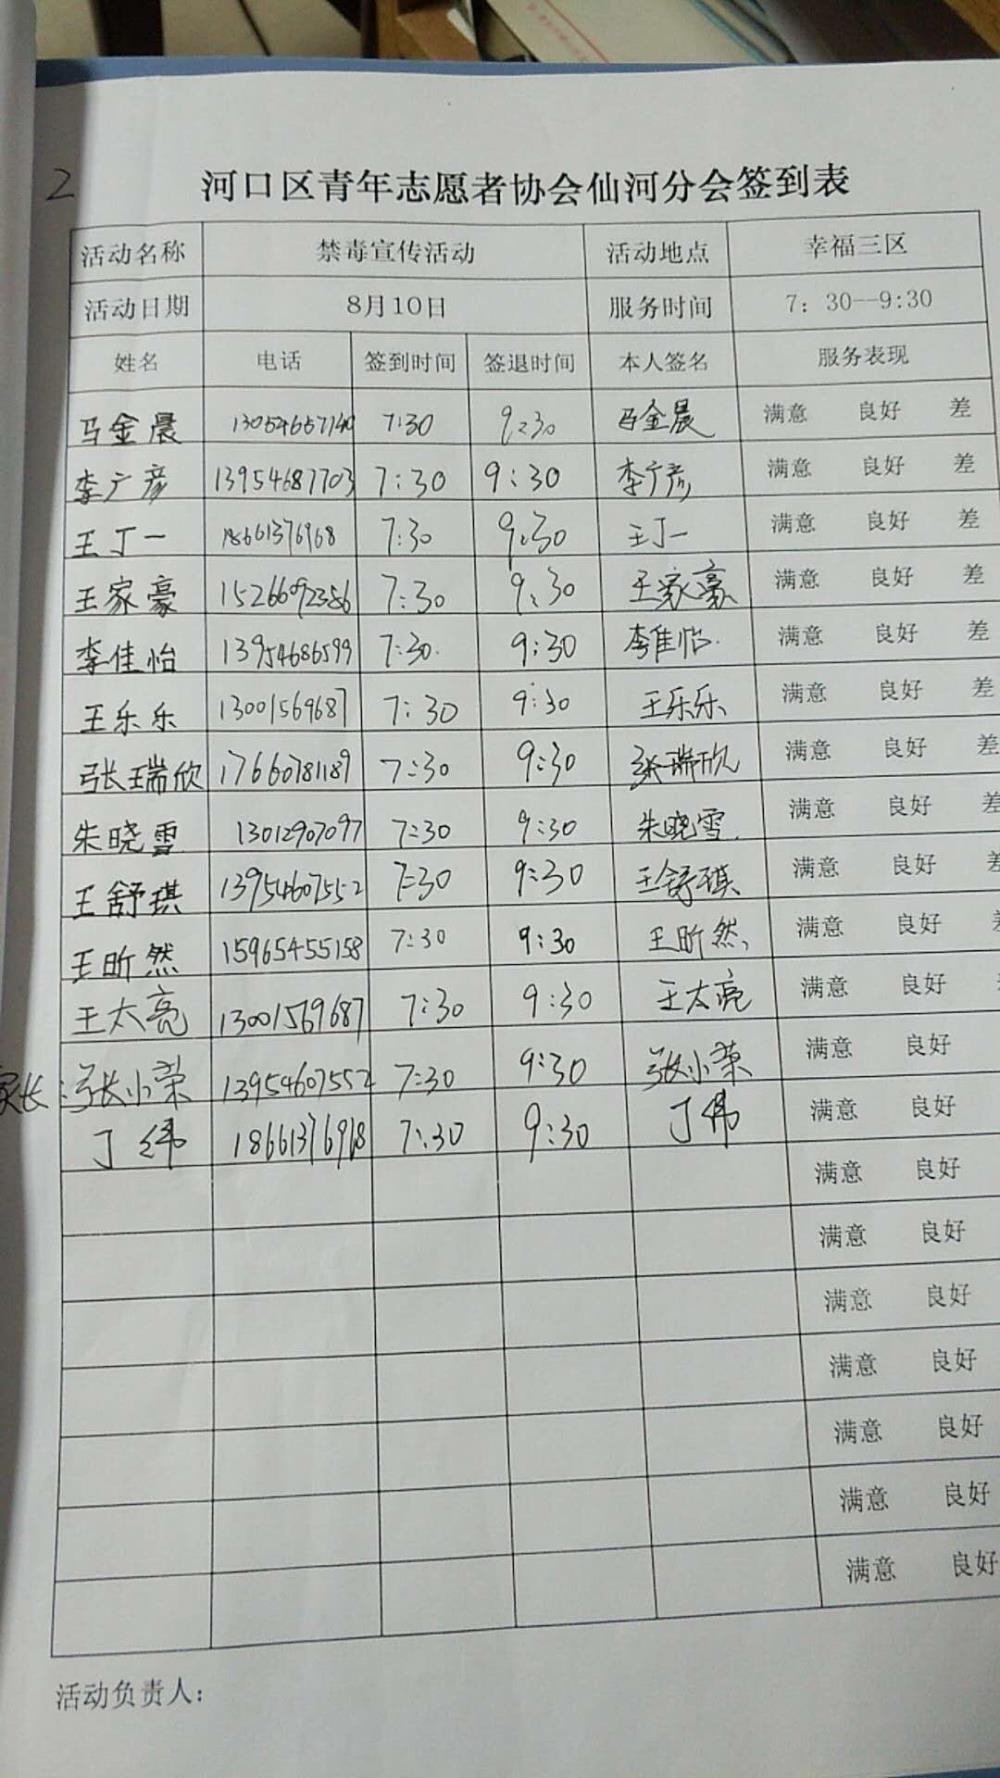 2
河口区青年志愿者协会仙河分会签到表
活动名称 禁毒宣传活动 活动地点 幸福三区
活动日期 8月10日 服务时间 7：30--9:30
姓名 电话 签到时间 签退时间 本人签名 服务表现
马金晨 13054657140 7:30 9:30 马金晨 满意 良好 差
李广彦 13954687703 7:30 9:30 李广彦 满意 良好 差
王丁一 18661376968 7:30 9:30 王丁一 满意 良好 差
王家豪 15266092386 7:30 9:30 王家豪 满意 良好 差
李佳怡 13954686599 7:30. 9:30 李佳怡. 满意 良好 差
王乐乐 13001569687 7:30 9:30 王乐乐 满意 良好 差
张瑞欣 17660781189 7:30 9:30 张瑞欣 满意 良好 差
朱晓雪 13012907097 7:30 9:30 朱晓雪 满意 良好 差
王舒琪 13954607552 7:30 9:30 王舒琪 满意 良好 差
王昕然 15965455158 7:30 9:30 王昕然 满意 良好
王太亮 13001569687 7:30 9:30 王太亮 满意 良好
家长：张小荣 13954607552 7:30 9:30 张小荣 满意 良好
丁纬 18661376968 7:30 9:30 丁纬 满意 良好
满意 良好
满意 良好
满意 良好
满意 良好
满意 良好
满意 良好
满意 良好
活动负责人：